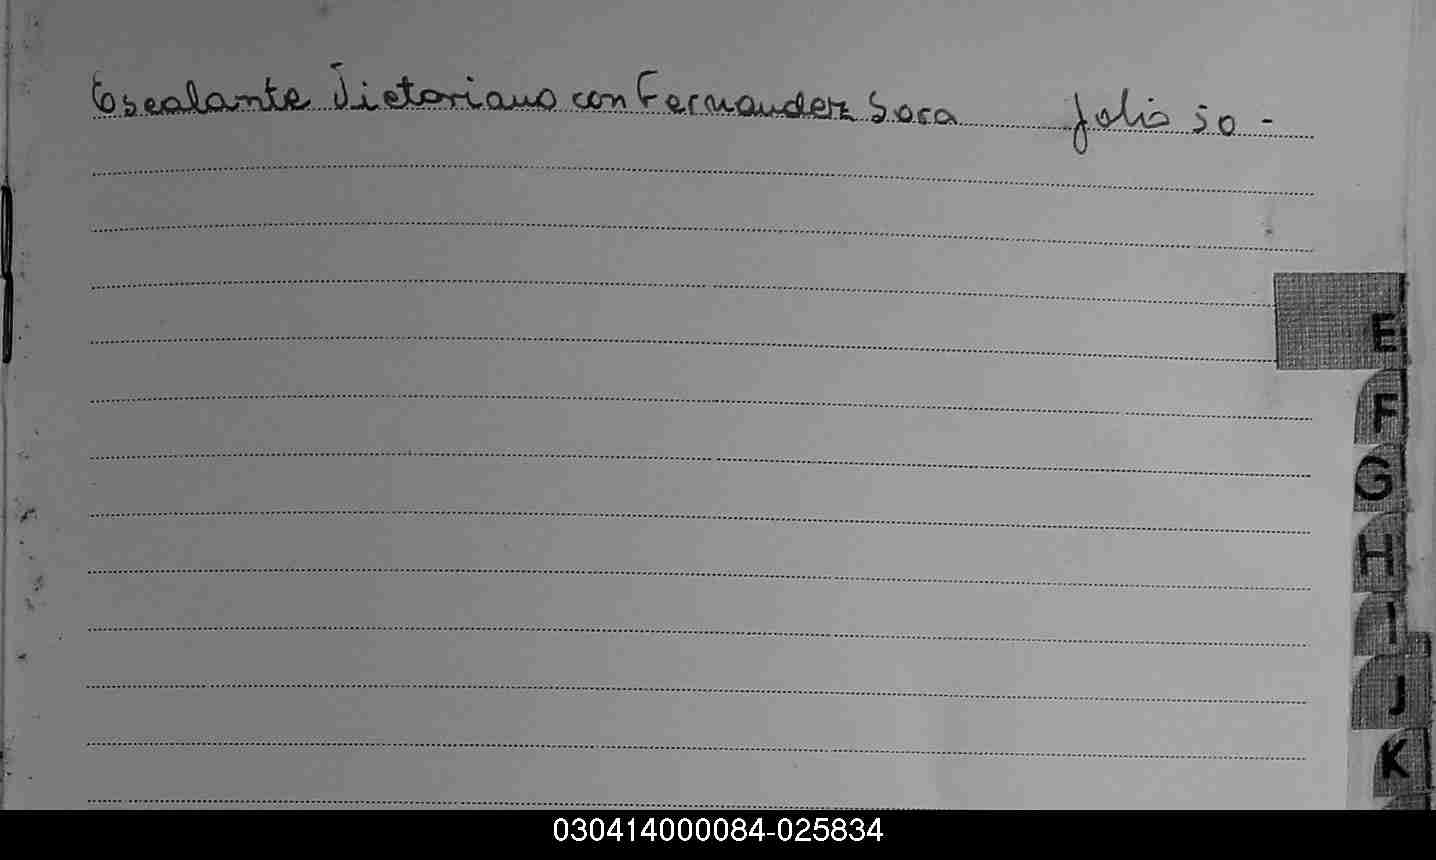 Escalante Victoriano con Fernandez Sara folio 50 -
E
F
G
H
I
J
K
030414000084-025834